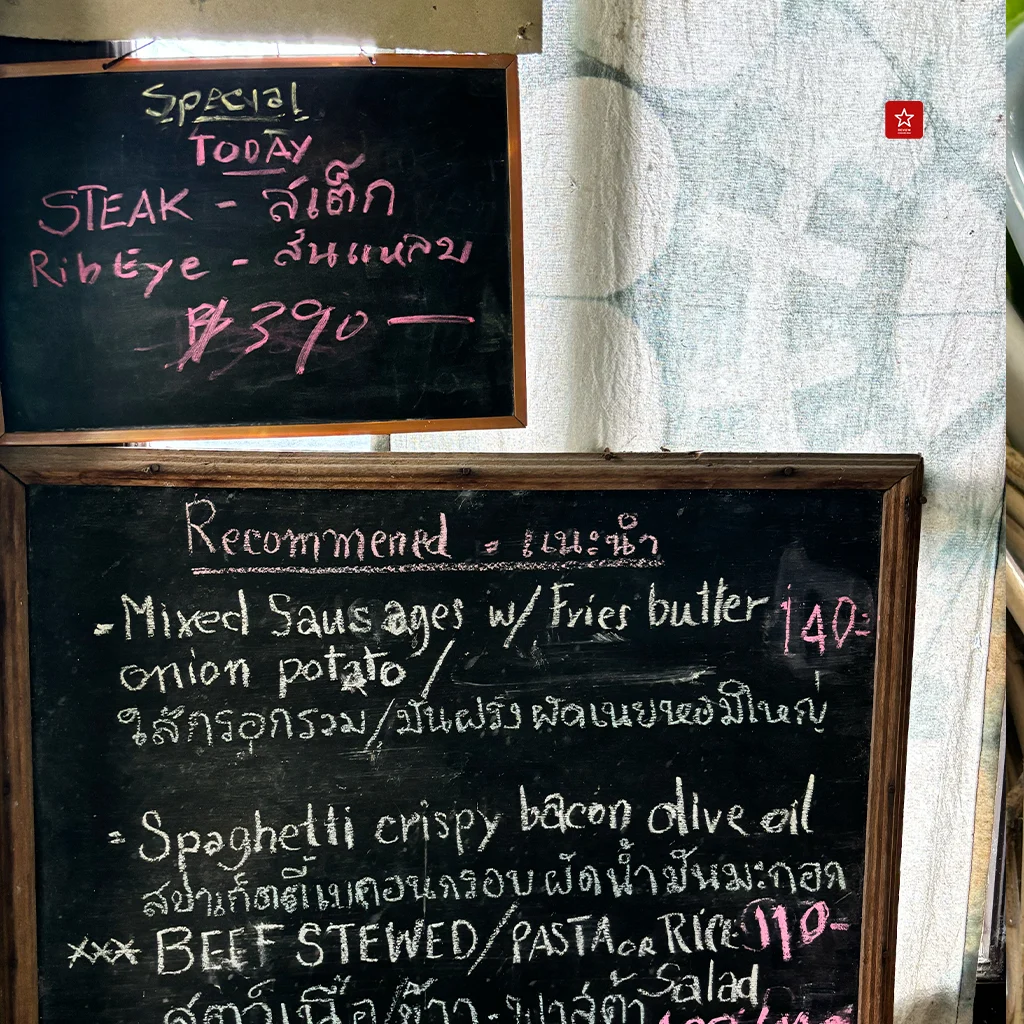 Special
TODAY
STEAK - สเต็ก
RibEye - สันแหลบ
฿390 —
Recommened = แนะนำ
- Mixed Sausages w/ Fries butter 140=
onion potato /
ไส้กรอกรวม/มันฝรั่งผัดเนยหอมใหญ่
= Spaghetti crispy bacon olive oil
สปาเก็ตตี้เบคอนกรอบผัดน้ำมันมะกอก
xxx BEEF STEWED/PASTA OR Rice 110-
Salad
สตูว์เนื้อ/ข้าว-พาสต้า